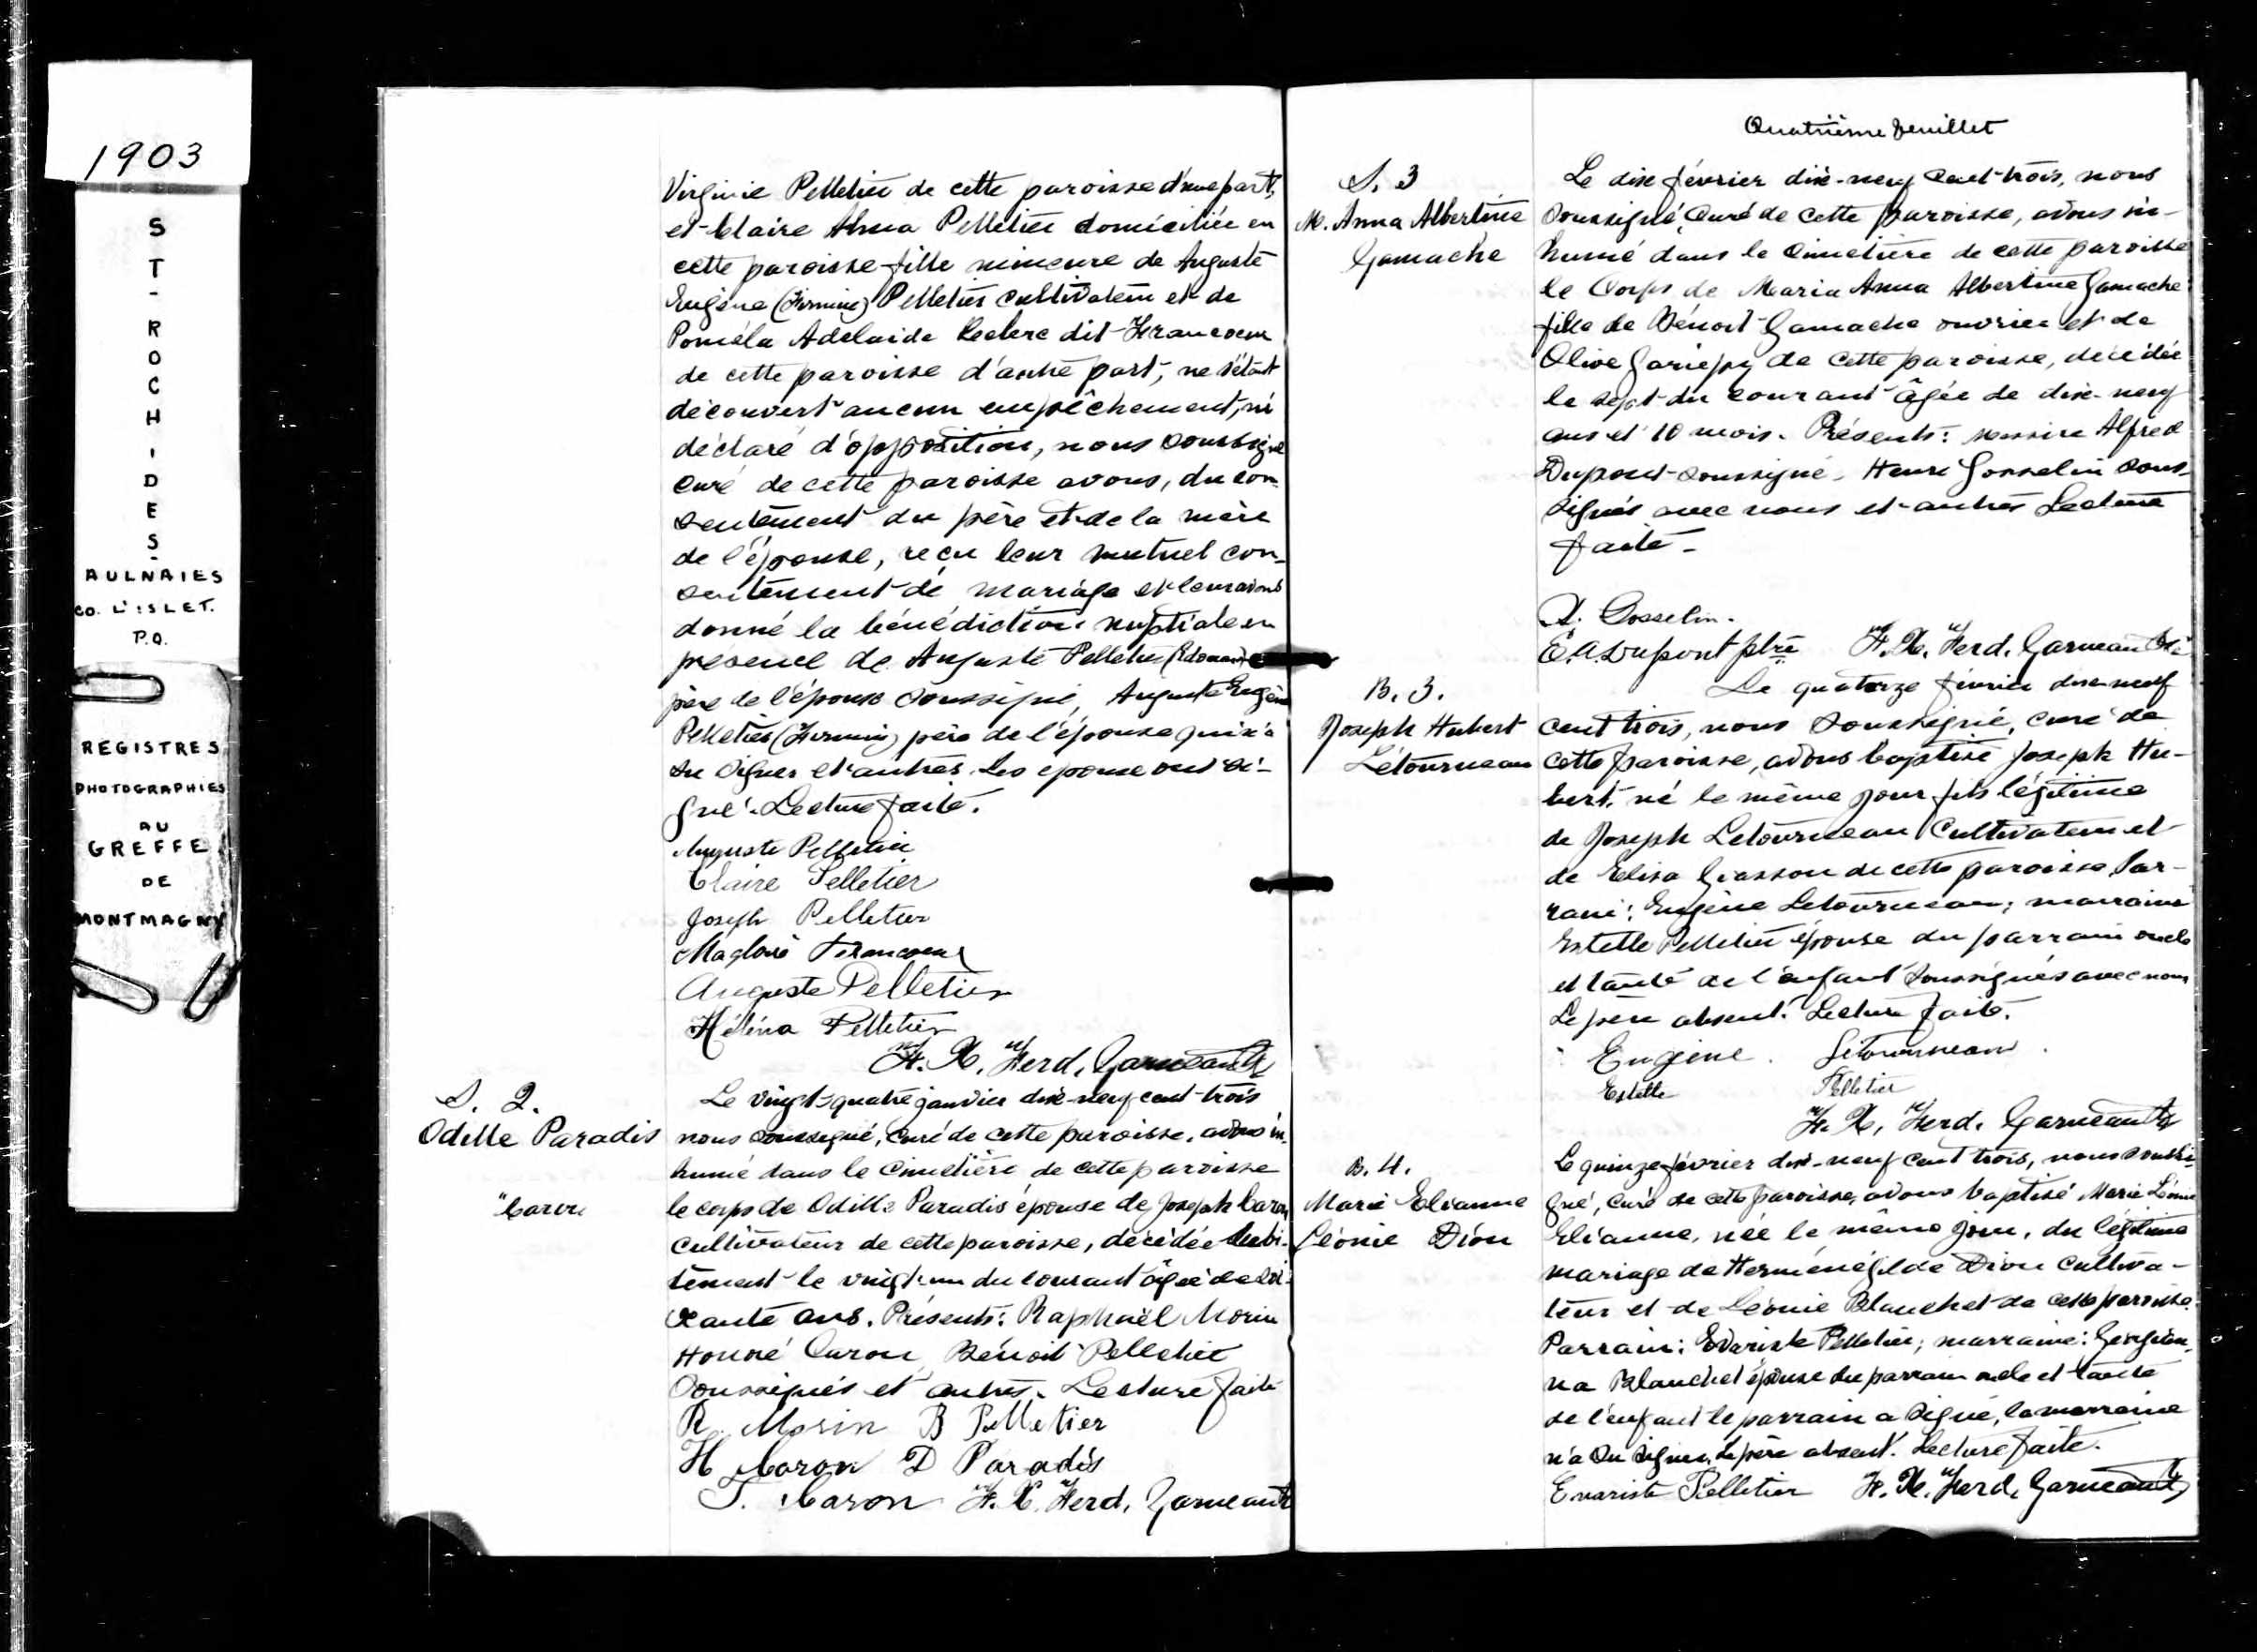 1903
ST-ROCH-DES-
AULNAIES
CO. L'ISLET.
P.Q.
REGISTRES
PHOTOGRAPHIES
AU
GREFFE
DE
MONTMAGNY
Virginie Pelletier de cette paroisse d'une part,
et Claire Alma Pelletier domiciliée en
cette paroisse fille mineure de Auguste
Eugène (Firmin) Pelletier cultivateur et de
Poméla Adelaide Leclerc dit Francoeur
de cette paroisse d'autre part, ne s'étant
découvert aucun empêchement, ni
déclaré d'opposition, nous soussigné
curé de cette paroisse avons, du con-
sentement du père et de la mère
de l'épouse, reçu leur mutuel con-
sentement de mariage et leur avons
donné la bénédiction nuptiale en
présence de Auguste Pelletier (Edouard)
père de l'époux soussigné, Auguste Eugène
Pelletier (Firmin) père de l'épouse qui n'a
su signer et autres. Les époux ont si-
gné. Lecture faite.
Auguste Pelletier
Claire Pelletier
Joseph Pelletier
Magloire Francoeur
Auguste Pelletier
Héléna Pelletier
F. X. Ferd. Garneau Ptre
S. 2.
Odille Paradis
"Caron
Le vingt-quatre janvier dix-neuf cent-trois
nous soussigné, curé de cette paroisse, avons in-
humé dans le cimetière de cette paroisse
le corps de Odille Paradis épouse de Joseph Caron
cultivateur de cette paroisse, décédée subi-
tement le vingt-un du courant âgée de soi-
xante ans. Présents: Raphaël Morin
Honoré Caron Bénoit Pelletier
soussignés et autres. Lecture faite
R. Morin B Pelletier
H Caron D Paradis
J. Caron F. X. Ferd. Garneau Ptre
Quatrième feuillet
S. 3
M. Anna Albertine
Gamache
Le dix février dix-neuf cent-trois, nous
soussigné, Curé de cette paroisse, avons in-
humé dans le cimetière de cette paroisse
le Corps de Maria Anna Albertine Gamache
fille de Bénoit Gamache ouvrier et de
Olive Gariépy de cette paroisse, décédée
le sept du courant âgée de dix-neuf
ans et 10 mois. Présents: Messire Alfred
Dupont soussigné. Henri Gosselin sous-
signés avec nous et autres Lecture
faite-
H. Gosselin.
E. A Dupont ptre F. X. Ferd. Garneau Ptre
B. 3.
Joseph Hubert
Létourneau
Le quatorze février dix-neuf
cent trois, nous soussigné, curé de
cette paroisse, avons baptisé Joseph Hu-
bert, né le même jour fils légitime
de Joseph Letourneau Cultivateur et
de Elisa Grasson de cette paroisse Par-
rain: Eugène Letourneau; marraine
Estelle Pelletier épouse du parrain oncle
et tante de l'enfant soussignés avec nous
Le père absent. Lecture faite.
Eugène Letourneau
Estelle Pelletier
F. X. Ferd. Garneau Ptre
B. 4.
Marie Elianne
Léonie Dion
Le quinze février dix-neuf cent trois, nous soussi-
gné, Curé de cette paroisse, avons baptisé Marie Léonie
Elianne, née le même jour, du légitime
mariage de Herménégilde Dion cultiva-
teur et de Léonie Blanchet de cette paroisse.
Parrain: Evariste Pelletier; marraine: Georgian-
na Blanchet épouse du parrain oncle et tante
de l'enfant le parrain a signé, la marraine
n'a su signer. Le père absent. Lecture faite.
Evariste Pelletier F. X. Ferd. Garneau Ptre